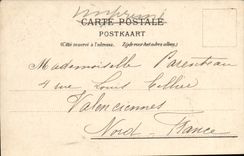 Imprimé
CARTE POSTALE
POSTKAART
(Côté réservé à l'adresse. Zijde voor het adres alleen.)
Mademoiselle Parenteau
4 rue Louis Cellier
Valenciennes
Nord - France